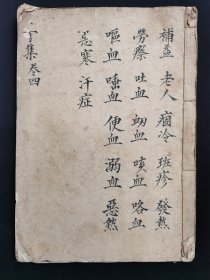 補益 老人 痼冷 斑疹 發熱
勞瘵 吐血 衂血 咳血 咯血
嘔血 唾血 便血 溺血 惡熱
惡寒 汗症
集卷四